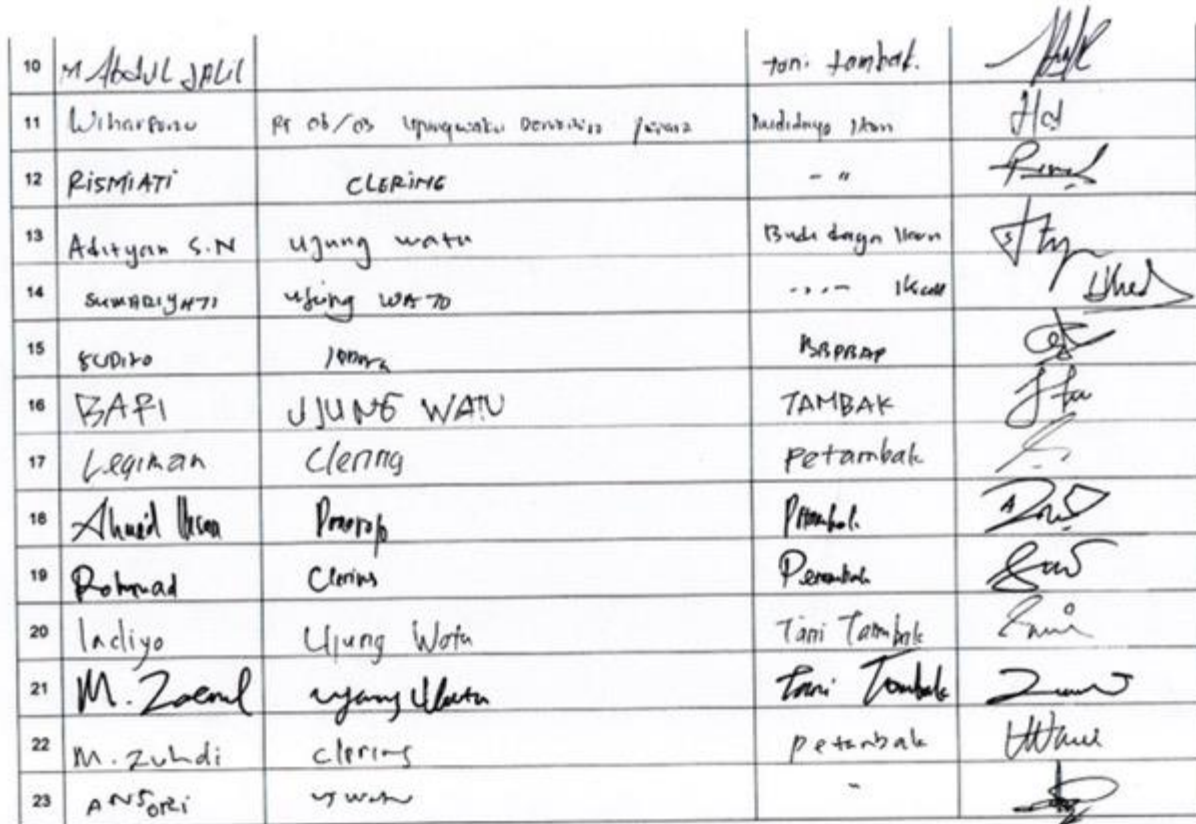 10 M Abdul JALIL tani tambak.
11 Wiharsono RT 06/03 Ujungwatu Budidaya Ikan
12 RISMIATI CLERING - "
13 Adityan S.N Ujung watu Budi daya Ikan
14 SUMARIYATI Ujung WATO Ikan
15 SUDIRO Jepara BBPBAP
16 BAFI UJUNG WATU TAMBAK
17 Legiman Clering Petambak
18 Ahmad
19 Rohmad Clering Petambak
20 Ladiyo Ujung Watu Tani Tambak
21 M. Zaenul Ujung Watu Tani Tambak
22 M. Zuhdi Clering petambak
23 ANSORI UJ Watu "